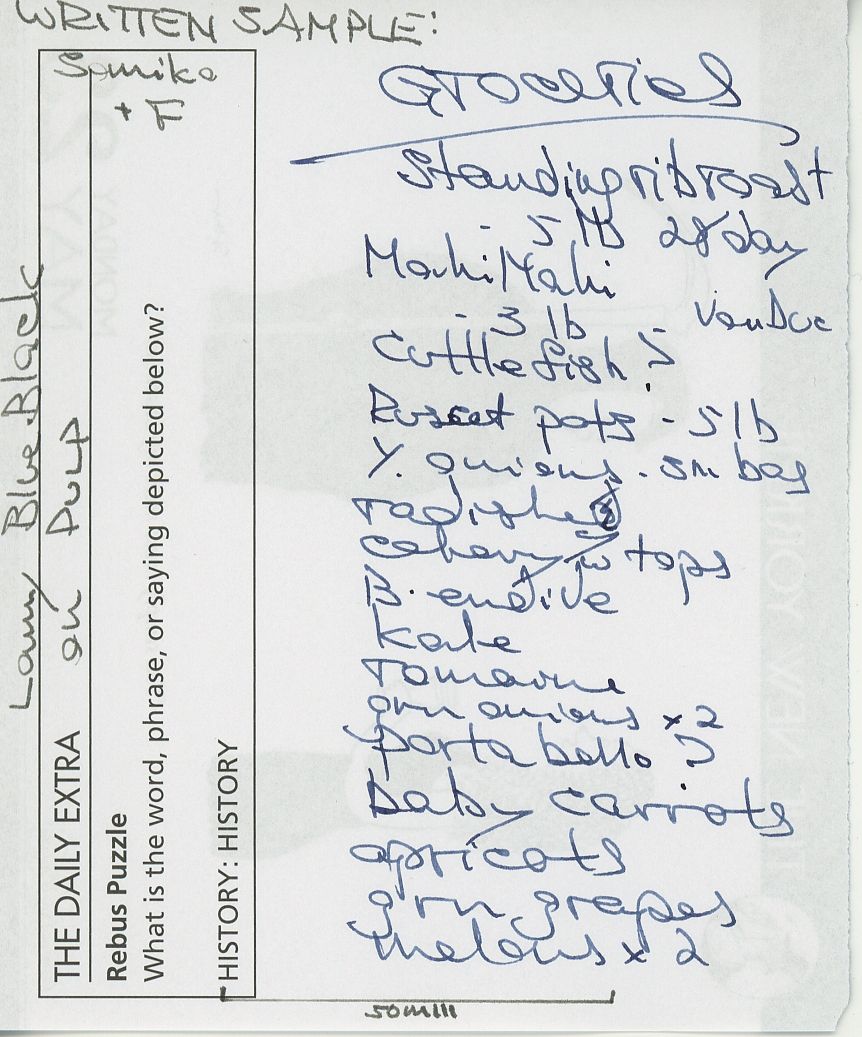 WRITTEN SAMPLE:
Lamy Blue Black
on Pulp
+ F
THE DAILY EXTRA
Rebus Puzzle
What is the word, phrase, or saying depicted below?
HISTORY: HISTORY
Groceries
Standing rib roast
- 5 lb 28 day
Mahi Mahi
- 3 lb
Cuttlefish ?
Russet pots - 5 lb
Y. onions - sm bag
radishes
celery w tops
B. endive
Kale
romaine
grn onions x 2
portabello ?
baby carrots
apricots
grn grapes
melons x 2
50mm